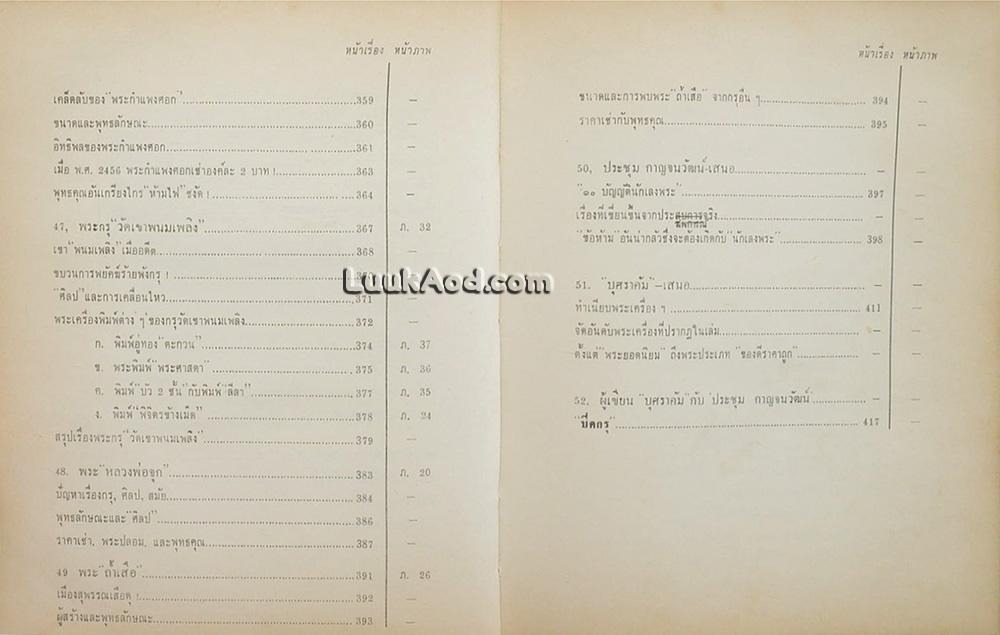 หน้าเรื่อง หน้าภาพ
เคล็ดลับของ "พระกำแพงศอก" 359 –
ขนาดและพุทธลักษณะ 360 –
อิทธิพลของพระกำแพงศอก 361 –
เมื่อ พ.ศ. 2456 พระกำแพงศอกเช่าองค์ละ 2 บาท ! 363 –
พุทธคุณอันเกรียงไกร "ห้ามไฟ" ชงัด ! 364 –
47, พระกรุ "วัดเขาพนมเพลิง" 367 ภ. 32
เขา "พนมเพลิง" เมื่ออดีต 368 –
ขบวนการพยัคฆ์ร้ายพังกรุ ! 370 –
"ศิลป" และการเคลื่อนไหว 371 –
พระเครื่องพิมพ์ต่าง ๆ ของกรุวัดเขาพนมเพลิง 372 –
ก. พิมพ์อู่ทอง "ตะกวน" 374 ภ. 37
ข. พระพิมพ์ "พระศาสดา" 375 ภ. 36
ค. พิมพ์ "บัว 2 ชั้น" กับพิมพ์ "ลีลา" 377 ภ. 35
ง. พิมพ์ "พิจิตรข้างเม็ด" 378 ภ. 24
สรุปเรื่องพระกรุ "วัดเขาพนมเพลิง" 379 –
48. พระ "หลวงพ่อจุก" 383 ภ. 20
ปัญหาเรื่องกรุ, ศิลป, สมัย 384 –
พุทธลักษณะและ "ศิลป" 386 –
ราคาเช่า, พระปลอม, และพุทธคุณ 387 –
49 พระ "ถ้ำเสือ" 391 ภ. 26
เมืองสุพรรณเสือดุ ! 392 –
ผู้สร้างและพุทธลักษณะ 393 –
หน้าเรื่อง หน้าภาพ
ขนาดและการพบพระ "ถ้ำเสือ" จากกรุอื่น ๆ 394 –
ราคาเช่ากับพุทธคุณ 395 –
50, ประชุม กาญจนวัฒน์-เสนอ – –
"๑๐ บัญญัตินักเลงพระ" 397 –
เรื่องที่เขียนขึ้นจากประสบการจริง – –
"ข้อห้าม" อันน่ากลัวซึ่งจะต้องเกิดกับ "นักเลงพระ" 398 –
51. "บุศราคัม" –เสนอ – –
ทำเนียบพระเครื่อง ๆ 411 –
จัดอันดับพระเครื่องที่ปรากฏในเล่ม – –
ตั้งแต่ "พระยอดนิยม" ถึงพระประเภท "ของดีราคาถูก" – –
52. ผู้เขียน "บุศราคัม" กับ "ประชุม กาญจนวัฒน์" – –
"ปิดกรุ" 417 –
LuukAod.com